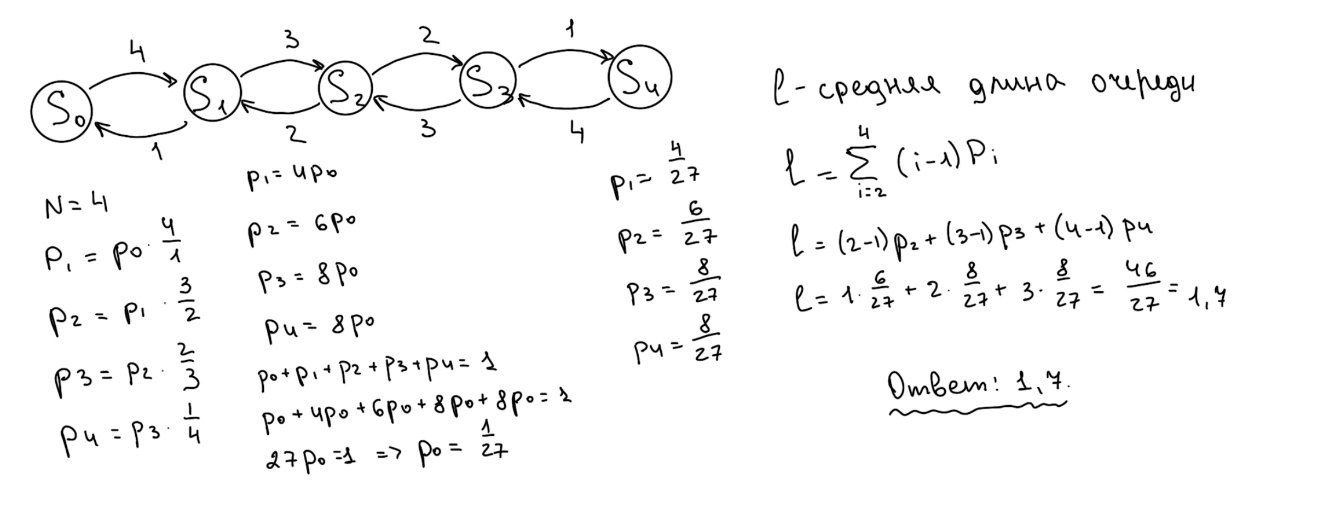 4 3 2 1
S₀ S₁ S₂ S₃ S₄
1 2 3 4
N = 4
P₁ = p₀ · 4/1
p₂ = p₁ · 3/2
p₃ = p₂ · 2/3
p₄ = p₃ · 1/4
p₁ = 4p₀
p₂ = 6p₀
p₃ = 8p₀
p₄ = 8p₀
p₀ + p₁ + p₂ + p₃ + p₄ = 1
p₀ + 4p₀ + 6p₀ + 8p₀ + 8p₀ = 1
27p₀ = 1 => p₀ = 1/27
p₁ = 4/27
p₂ = 6/27
p₃ = 8/27
p₄ = 8/27
l - средняя длина очереди
l = ∑_{i=2}^{4} (i-1) P_i
l = (2-1)p₂ + (3-1)p₃ + (4-1)p₄
l = 1 · 6/27 + 2 · 8/27 + 3 · 8/27 = 46/27 = 1,7
Ответ: 1,7.